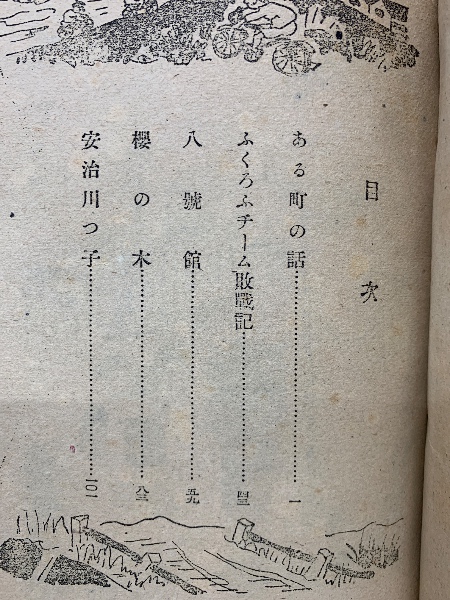 目次
ある町の話……一
ふくろふチーム敗戰記……四三
八號館……五九
櫻の木……八三
安治川つ子……一〇一